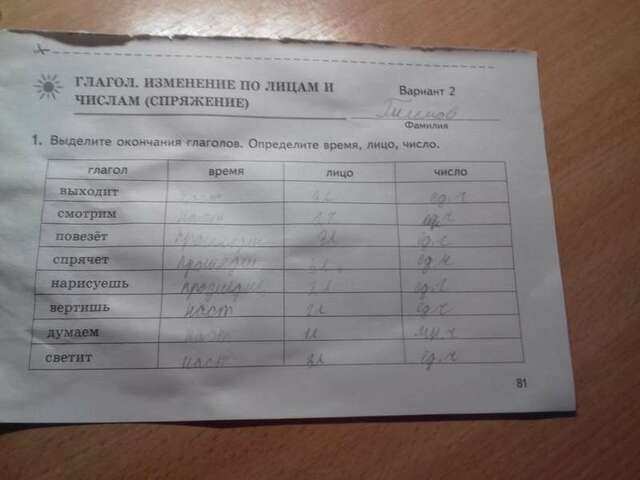 ГЛАГОЛ. ИЗМЕНЕНИЕ ПО ЛИЦАМ И
ЧИСЛАМ (СПРЯЖЕНИЕ)
Вариант 2
Фамилия
1. Выделите окончания глаголов. Определите время, лицо, число.
глагол время лицо число
выходит наст ед.ч
смотрим наст ед.ч
повезёт 3л ед.ч
спрячет ед.ч
нарисуешь ед.ч
вертишь наст 2л ед.ч
думаем наст 1л мн.ч
светит наст 3л ед.ч
81